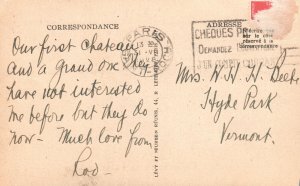 CORRESPONDANCE
Our first Chateau
And a grand one. They
have not interested
me before but they do
now - Much love from
Rod -
LÉVY ET NEURDEIN RÉUNIS, 44,
PARIS
ADRESSE
CHEQUES
DEMANDEZ
Mrs. W. H. H.
Hyde Park
Vermont.